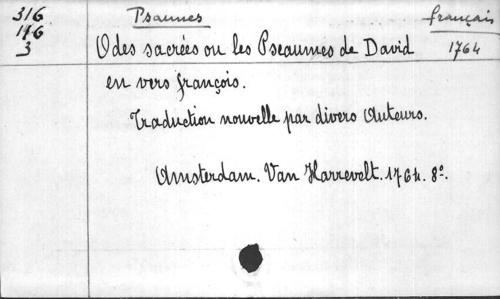 316 Psaumes français
116
3 Odes sacrées ou les Pseaumes de David 1764
en vers françois.
Traduction nouvelle par divers Auteurs.
Amsterdam. Van Harrevelt. 1764. 8º.